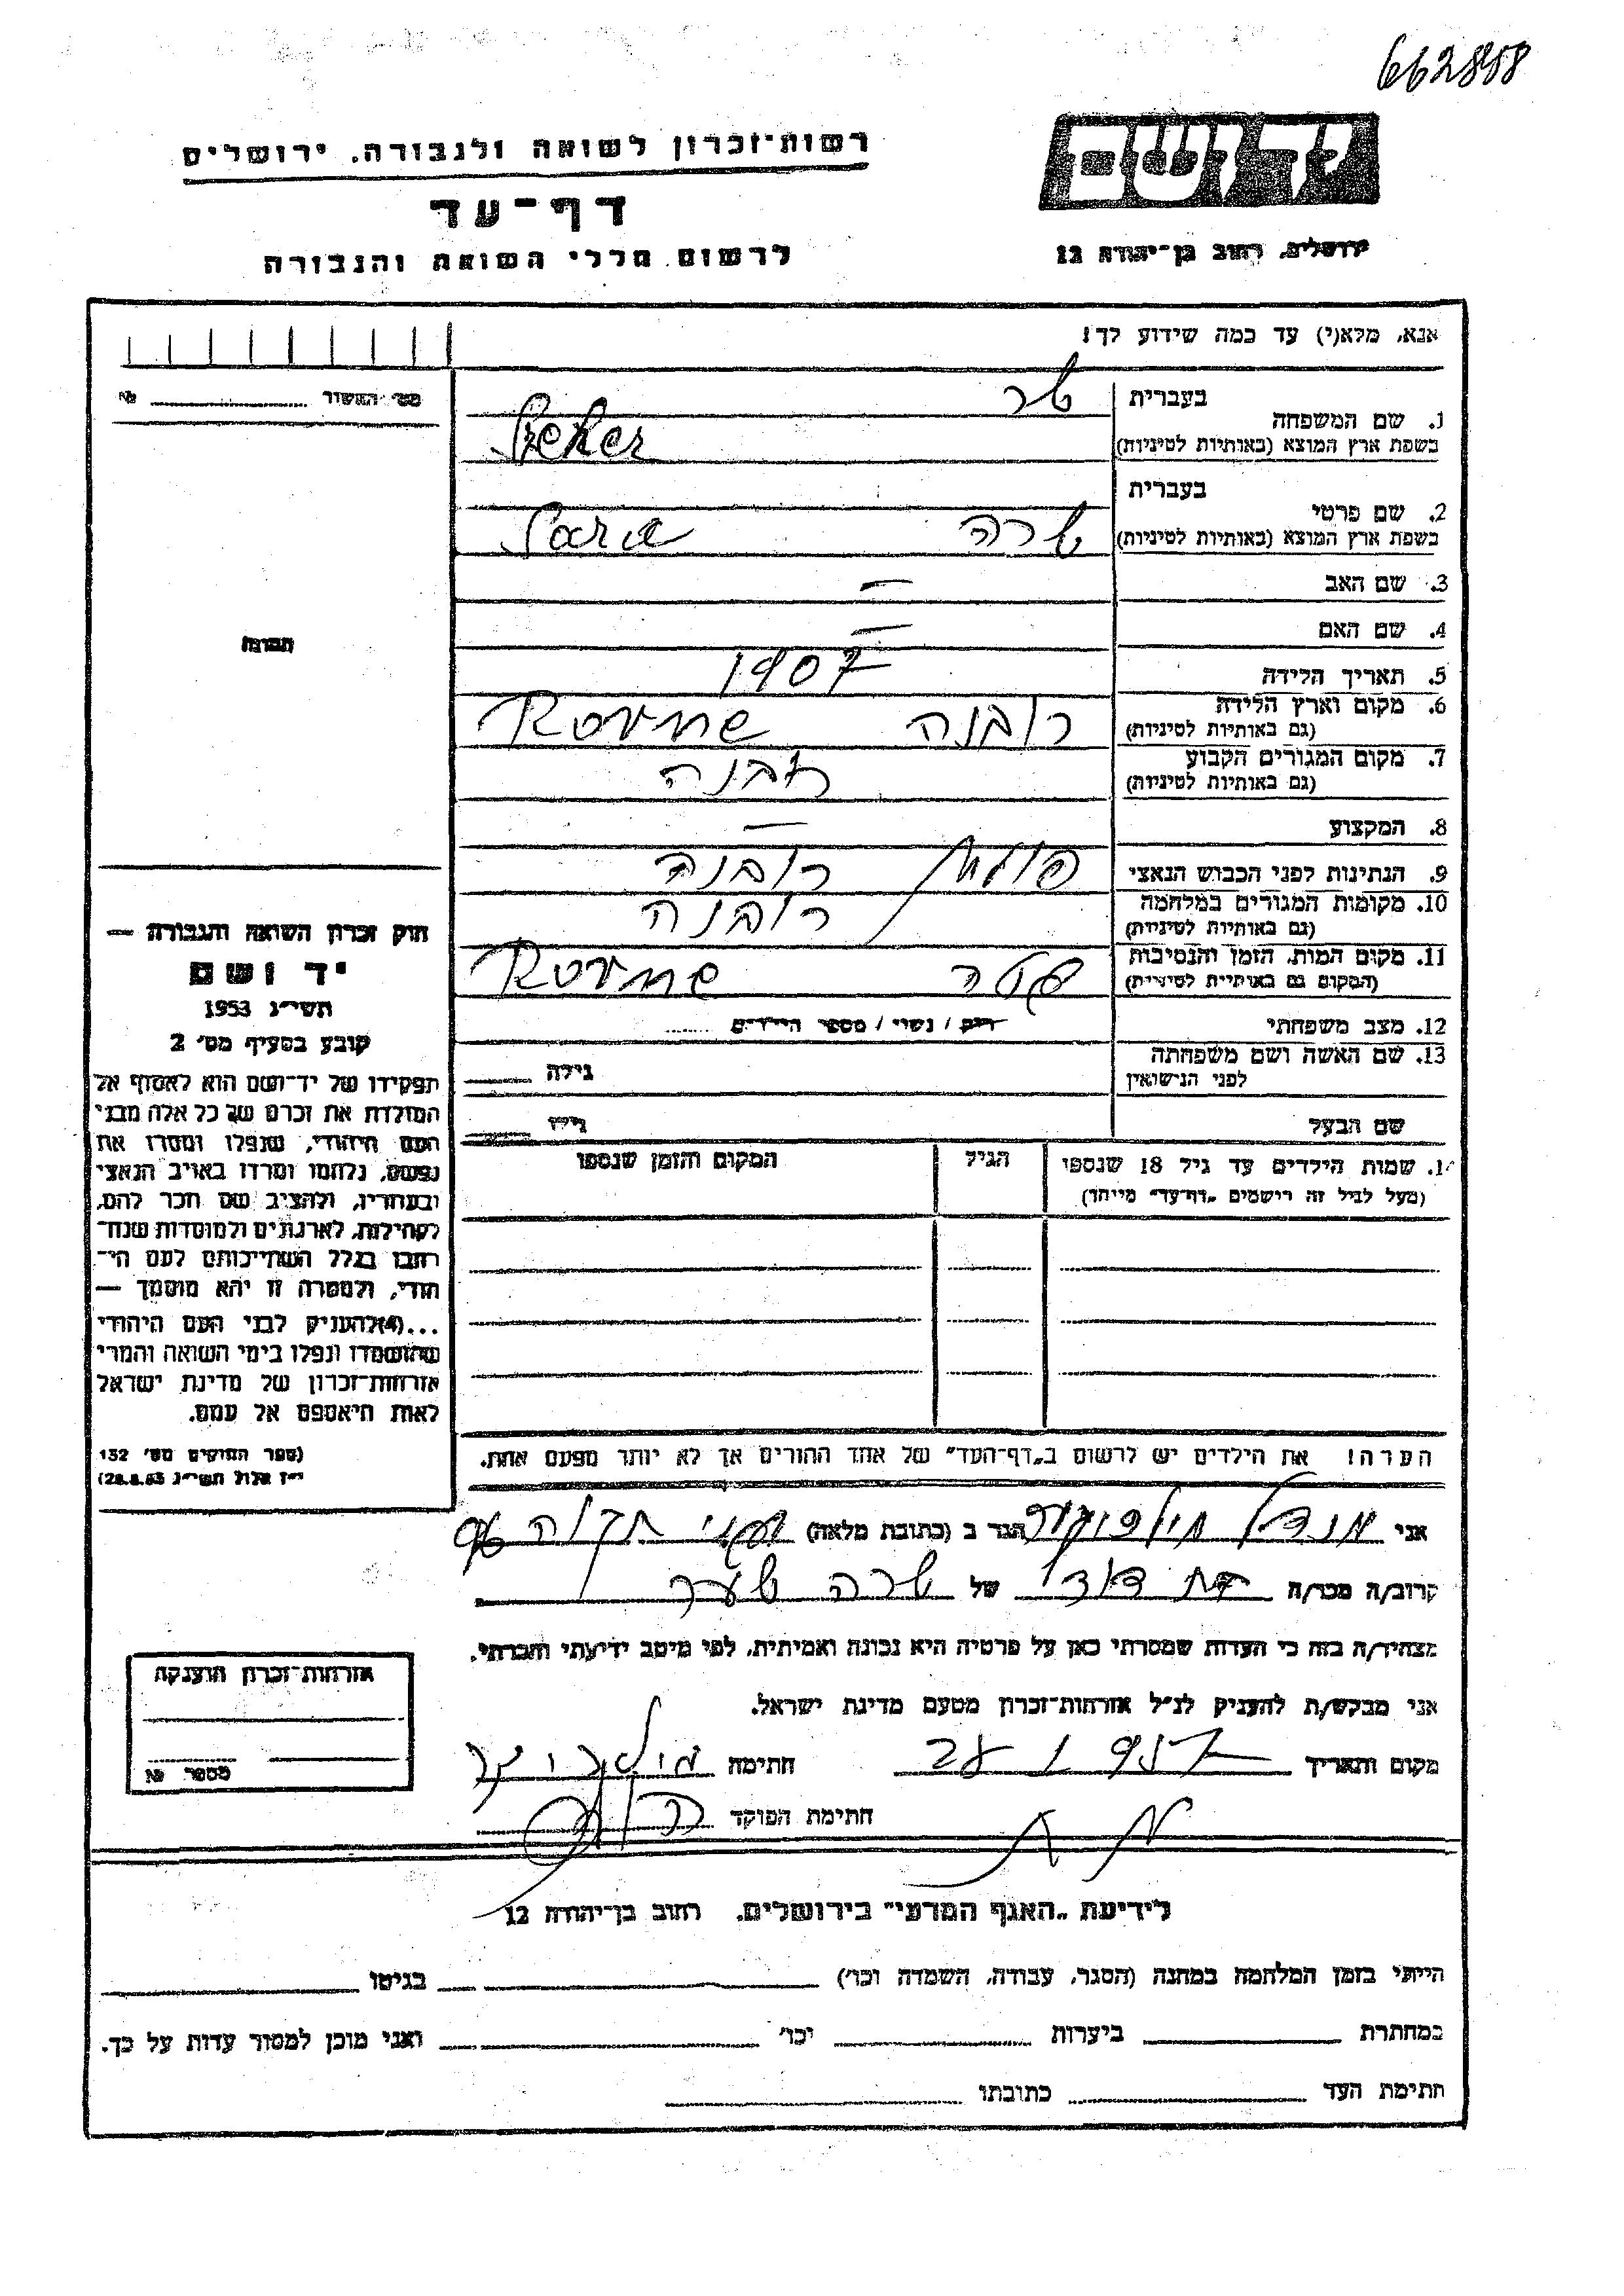 662858
רשות־זכרון לשואה ולגבורה, ירושלים
יד ושם
דף־עד
לרשום חללי השואה והגבורה
ירושלים, רחוב בן־יהודה 12
אנא, מלא(י) עד כמה שידוע לך!
מס׳ האשור № 
1. שם המשפחה
בעברית
בשפת ארץ המוצא (באותיות לטיניות)
2. שם פרטי
בעברית
שרה Sara
בשפת ארץ המוצא (באותיות לטיניות)
3. שם האב —
4. שם האם —
תמונה
5. תאריך הלידה 1907
6. מקום וארץ הלידה רובנה Rovne
(גם באותיות לטיניות)
7. מקום המגורים הקבוע רובנה
(גם באותיות לטיניות)
8. המקצוע —
9. הנתינות לפני הכבוש הנאצי רובנה
10. מקומות המגורים במלחמה רובנה
(גם באותיות לטיניות)
11. מקום המות, הזמן והנסיבות Rovne
(המקום גם באותיות לטיניות)
12. מצב משפחתי רוק / נשוי / מספר הילדים
13. שם האשה ושם משפחתה גילה
לפני הנישואין
שם הבעל גילו
14. שמות הילדים עד גיל 18 שנספו הגיל המקום והזמן שנספו
(מעל לגיל זה רושמים „דף־עד״ מיוחד)
חוק זכרון השואה והגבורה —
יד ושם
תשי״ג 1953
קובע בסעיף מס׳ 2
תפקידו של יד־ושם הוא לאסוף אל
המולדת את זכרם של כל אלה מבני
העם היהודי, שנפלו ומסרו את
נפשם, נלחמו ומרדו באויב הנאצי
ובעוזריו, ולהציב שם וזכר להם,
לקהילות, לארגונים ולמוסדות שנח־
רבו בגלל השתייכותם לעם הי־
הודי, ולמטרה זו יהא מוסמך —
...(4)להעניק לבני העם היהודי
שהושמדו ונפלו בימי השואה והמרי
אזרחות־זכרון של מדינת ישראל
לאות היאספם אל עמם.
(ספר החוקים מס׳ 132
י״ז אלול תשי״ג 28.8.53)
הערה! את הילדים יש לרשום ב„דף־העד״ של אחד ההורים אך לא יותר מפעם אחת.
אני מנדל הגר ב (כתובת מלאה) תקוה
קרוב/ה מכר/ה בת דוד של שרה
מצהיר/ה בזה כי העדות שמסרתי כאן על פרטיה היא נכונה ואמיתית, לפי מיטב ידיעתי והכרתי.
אני מבקש/ת להעניק לנ״ל אזרחות־זכרון מטעם מדינת ישראל.
מקום ותאריך חתימה
חתימת הפוקד
אזרחות־זכרון הוענקה
מספר №
לידיעת „האגף המדעי״ בירושלים, רחוב בן־יהודה 12
הייתי בזמן המלחמה במחנה (הסגר, עבודה, השמדה וכו׳) בגיטו
במחתרת ביערות וכו׳ ואני מוכן למסור עדות על כך.
חתימת העד כתובתו